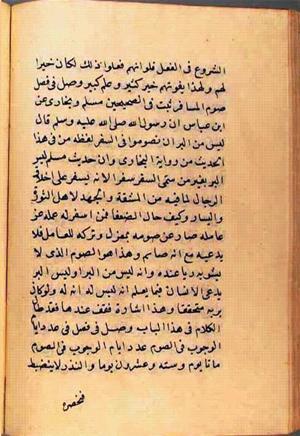 الشروع فى الفعل فلو انهم فعلوا ذلك لكان خيرا
لهم ولهذا يفوتهم خير كثير وعلم كبير وصل فى فصل
صوم المسافر ثبت فى الصحيحين مسلم وبخارى عن
ابن عباس ان رسول الله صلى الله عليه وسلم قال
ليس من البر ان تصوموا فى السفر لفظه من فى هذا
الحديث من رواية البخارى وان حديث مسلم ليس
البر بغير من سمى السفر سفرا الا نه يسفر على اخلاق
الرجال لما فيه من المشقة والجهد لاهل الثروة
واليسار وكيف حال الضعفا فمن اسفر له عمله عن
عامله صار عن صومه بمعزل وتركه للعامل فلا
يدعيه مع انه صائم وهذا هو الصوم الذى لا
يشوبه ريا عنده وانه ليس من البر اوليس البر ان
يدعى الانسان فيما يعلم انه ليس له انه له ولو كان
بربه متحققا وهذا اشارة فقف عندها فقد طال
الكلام فى هذا الباب وصل فى فصل فى عدد ايام
الوجوب فى الصوم عدد ايام الوجوب فى الصوم
مائتا يوم وستة وعشرون يوما والنذر لا ينضبط